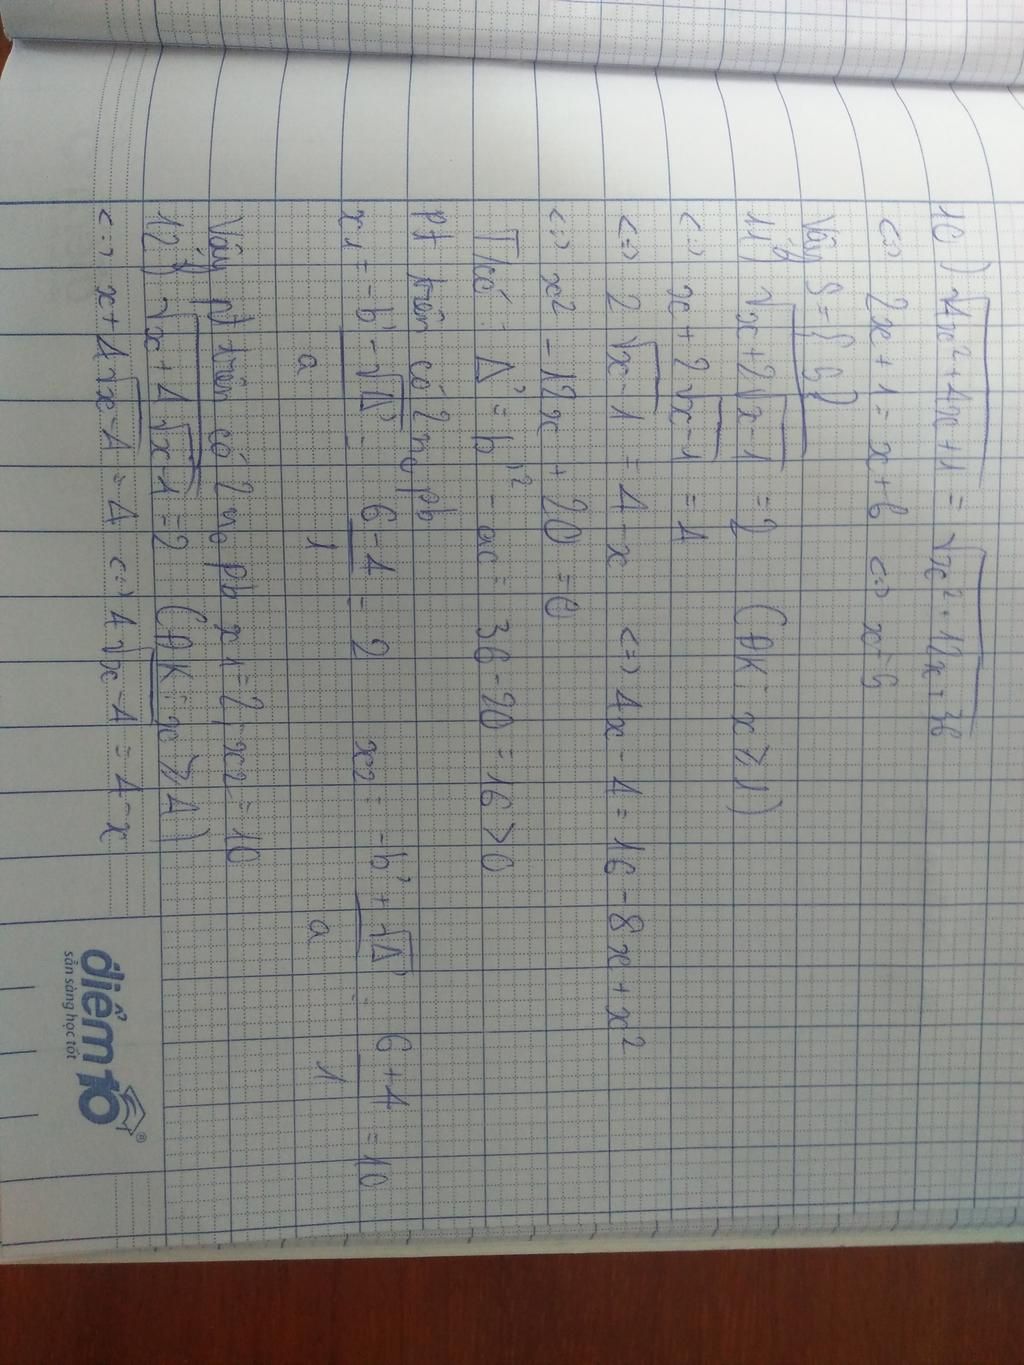 10) √4x²+4x+1 = √x²+12x+36
<=> 2x+1 = x+6 <=> x=5
Vậy S={5}
11) √x+2√x-1 =2 (ĐK: x⩾1)
<=> x+2√x-1 =4
<=> 2√x-1 = 4-x <=> 4x-4=16-8x+x²
<=> x²-12x+20=0
T/có: Δ'=b'²-ac=36-20=16>0
Pt trên có 2 no pb
x1 = -b'-√Δ' = 6-4 = 2 x2 = -b'+√Δ' = 6+4 =10
a 1 a 1
Vậy pt trên có 2 no pb x1=2; x2=10
12) √x+4√x-4 =2 (ĐK: x⩾4)
<=> x+4√x-4 =4 <=> 4√x-4 = 4-x
điểm 10
sẵn sàng học tốt